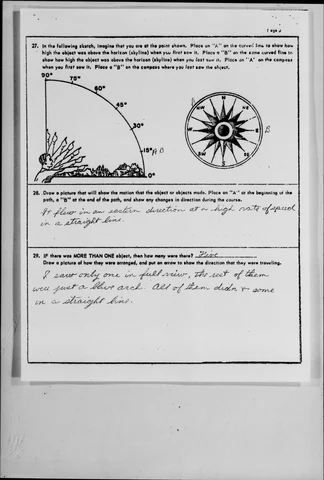 Page 3
27. In the following sketch, imagine that you are at the point shown. Place an "A" on the curved line to show how
high the object was above the horizon (skyline) when you first saw it. Place a "B" on the same curved line to
show how high the object was above the horizon (skyline) when you last saw it. Place an "A" on the compass
when you first saw it. Place a "B" on the compass where you last saw the object.
90°
75°
60°
45°
30°
15° A B
0°
A
N
NE
E
B
SE
S
SW
W
NW
28. Draw a picture that will show the motion that the object or objects made. Place an "A" at the beginning of the
path, a "B" at the end of the path, and show any changes in direction during the course.
It flew in an eastern direction at a high rate of speed
in a straight line.
29. IF there was MORE THAN ONE object, then how many were there? Five
Draw a picture of how they were arranged, and put an arrow to show the direction that they were traveling.
I saw only one in full view, the rest of them
were just a blue arch. All of them didn't some
in a straight line.